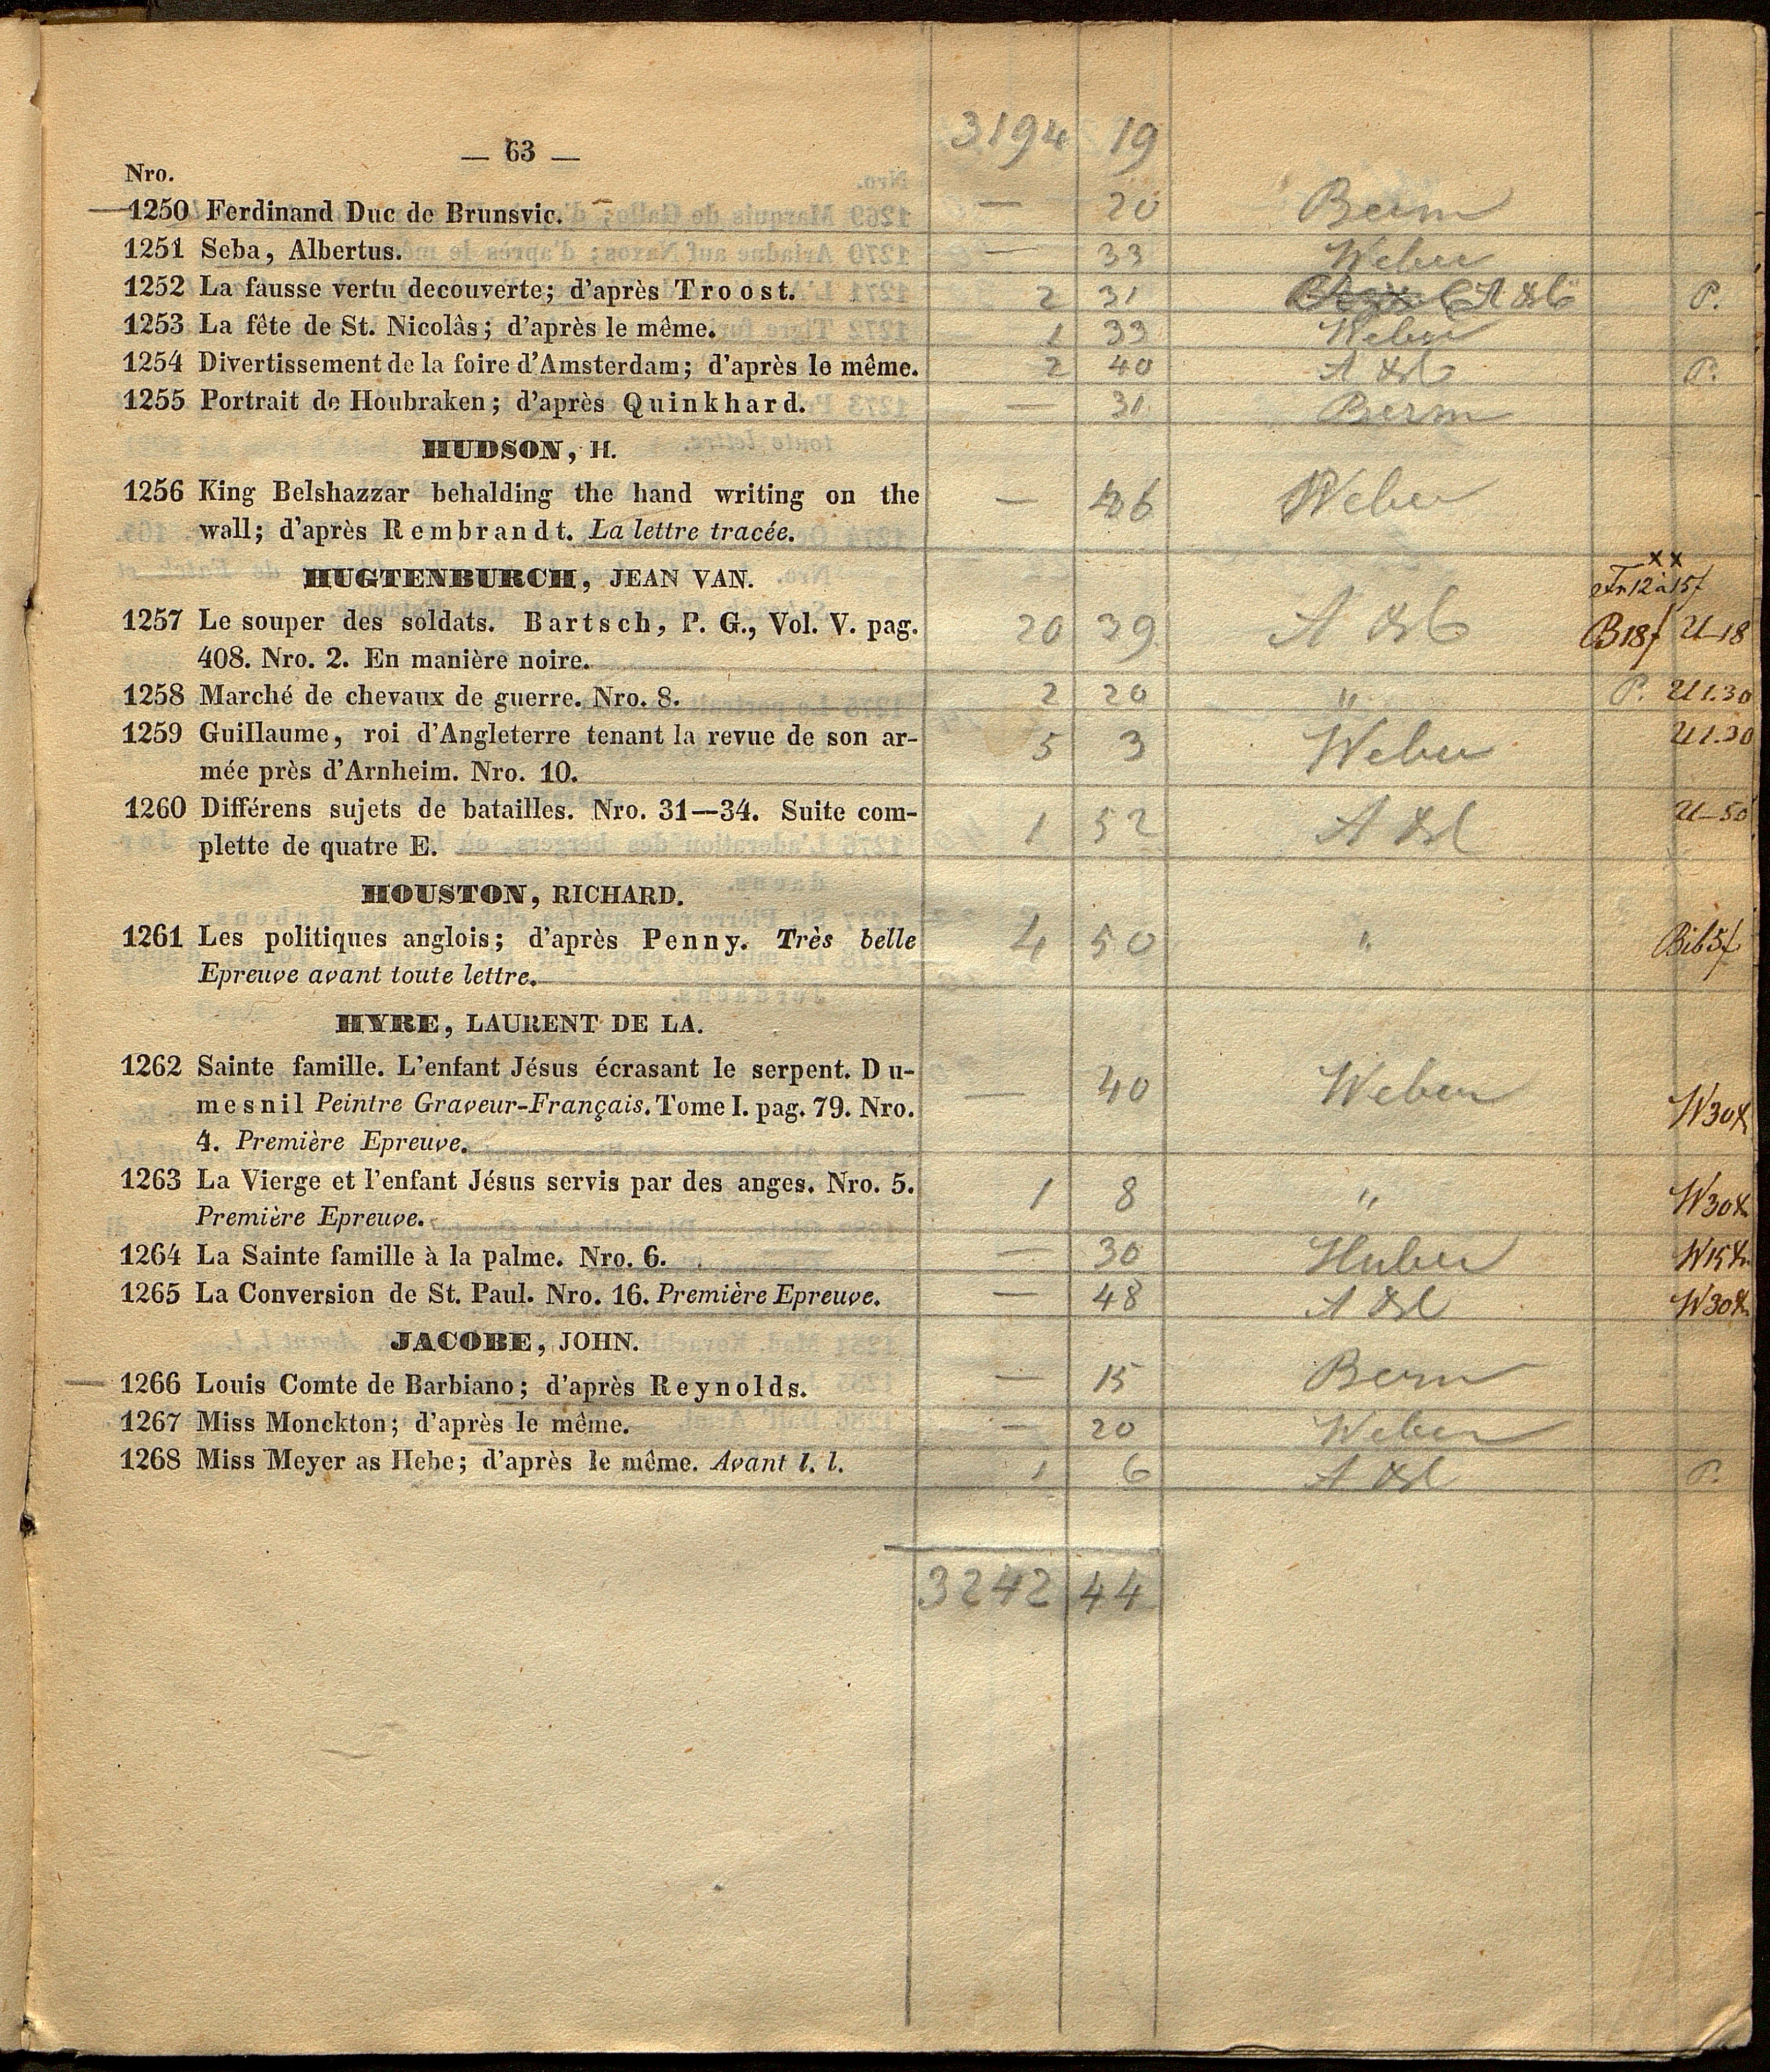 3194 19
— 63 —
Nro.
1250 Ferdinand Duc de Brunsvic. — 20 Berm
1251 Seba, Albertus. — 33 Weber
1252 La fausse vertu decouverte; d'après Troost. 2 31 P.
1253 La fête de St. Nicolâs; d'après le même. 1 33 Weber
1254 Divertissement de la foire d'Amsterdam; d'après le même. 2 40 P.
1255 Portrait de Houbraken; d'après Quinkhard. — 31 Berm
HUDSON, H.
1256 King Belshazzar behalding the hand writing on the — 36 Weber
wall; d'après Rembrandt. La lettre tracée.
HUGTENBURCH, JEAN VAN.
xx
1257 Le souper des soldats. Bartsch, P. G., Vol. V. pag. 20 39 B18f U–18
408. Nro. 2. En manière noire.
1258 Marché de chevaux de guerre. Nro. 8. 2 20 " P. U 1.30
1259 Guillaume, roi d'Angleterre tenant la revue de son ar- 5 3 Weber U 1.30
mée près d'Arnheim. Nro. 10.
1260 Différens sujets de batailles. Nro. 31—34. Suite com- 1 52 U–50
plette de quatre E.
HOUSTON, RICHARD.
1261 Les politiques anglois; d'après Penny. Très belle 4 50 "
Epreuve avant toute lettre.
HYRE, LAURENT DE LA.
1262 Sainte famille. L'enfant Jésus écrasant le serpent. Du- — 40 Weber
mesnil Peintre Graveur-Français. Tome I. pag. 79. Nro. W30x
4. Première Epreuve.
1263 La Vierge et l'enfant Jésus servis par des anges. Nro. 5. 1 8 " W30x
Première Epreuve.
1264 La Sainte famille à la palme. Nro. 6. — 30 Huber W15x
1265 La Conversion de St. Paul. Nro. 16. Première Epreuve. — 48 W30x
JACOBE, JOHN.
— 1266 Louis Comte de Barbiano; d'après Reynolds. — 15 Berm
1267 Miss Monckton; d'après le même. — 20 Weber
1268 Miss Meyer as Hebe; d'après le même. Avant l. l. 1 6 P.
3242 44